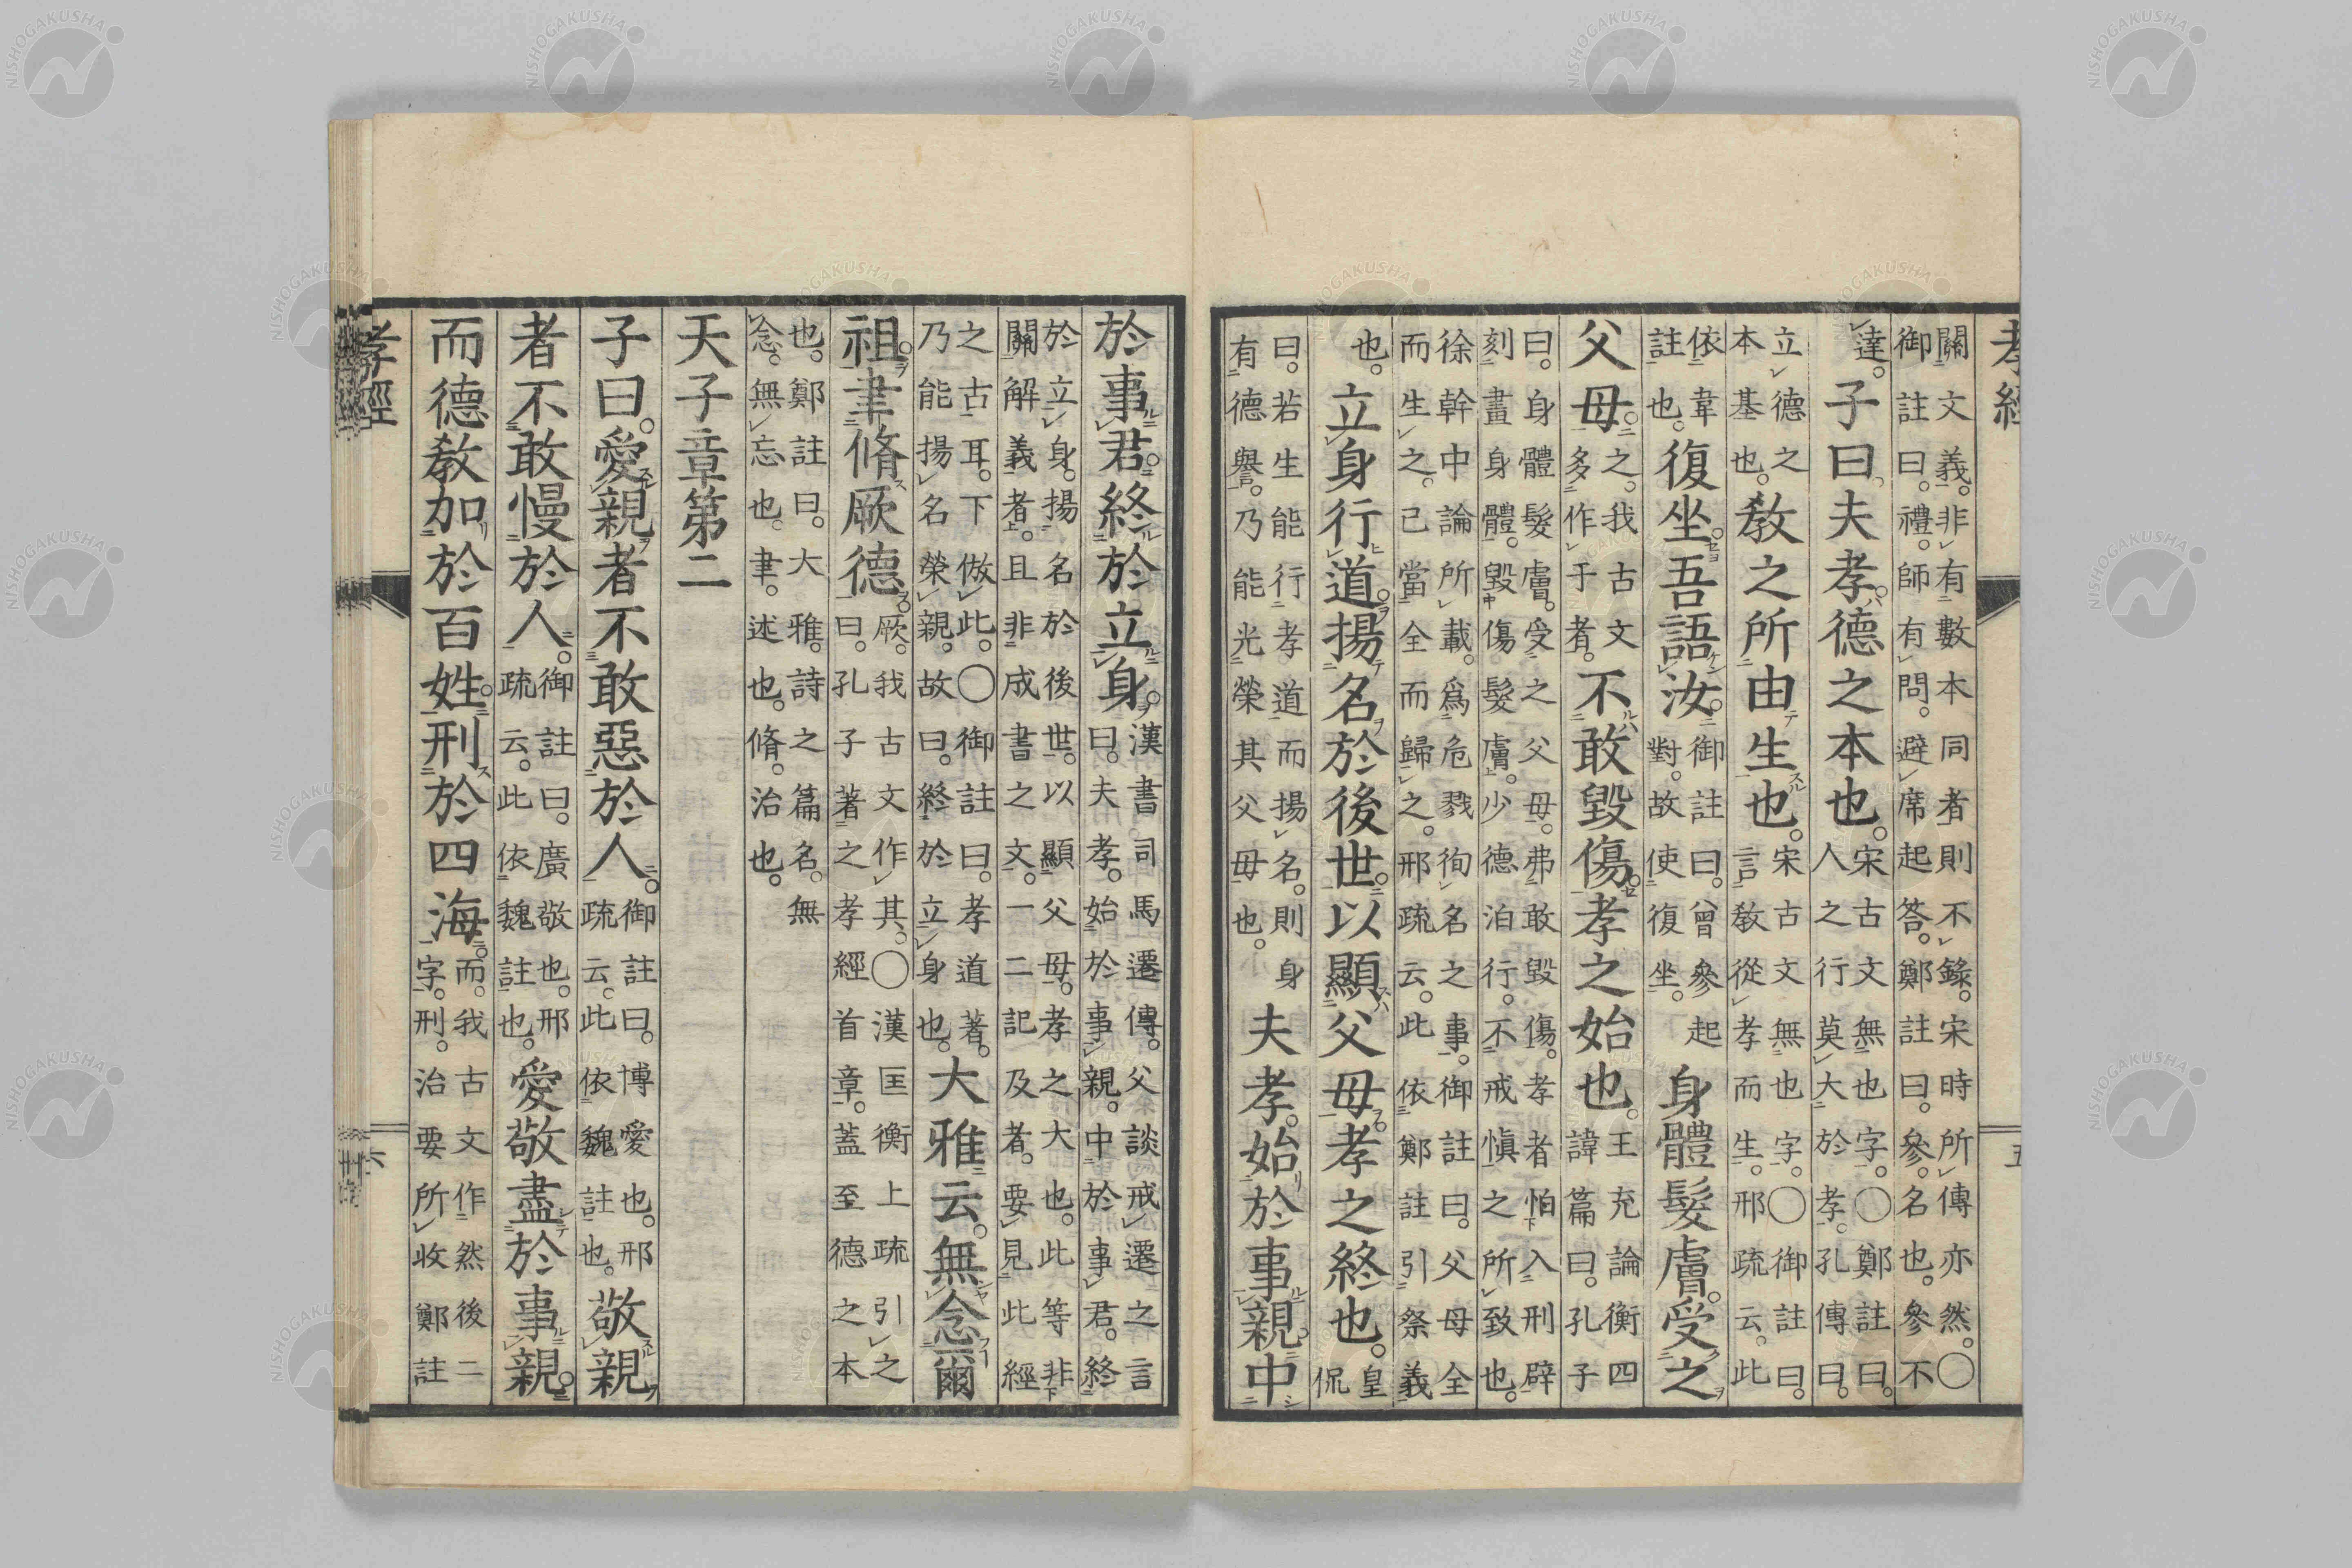 孝經
關文義。非有數本同者則不錄。宋時所傳亦然。〇
御註曰。禮。師有問。避席起答。鄭註曰。參。名也。參不
達。子曰。夫孝。德之本也。宋古文無也字。〇鄭註曰。
人之行莫大於孝。孔傳曰。
立德之
本基也。教之所由生也。宋古文無也字。〇御註曰。
言教從孝而生。邢疏云。此
依韋
註也。復坐。吾語汝。御註曰。曾參起
對。故使復坐。身體髮膚。受之
父母。之。我古文
多作于者。不敢毀傷。孝之始也。王充論衡四
諱篇曰。孔子
曰。身體髮膚。受之父母。弗敢毀傷。孝者怕入刑辟
刻畫身體。毀傷髮膚。少德泊行。不戒愼之所致也。
徐幹中論所載。爲危戮徇名之事。御註曰。父母全
而生之。己當全而歸之。邢疏云。此依鄭註引祭義
也。立身行道。揚名於後世。以顯父母。孝之終也。皇
侃
曰。若生能行孝道而揚名。則身
有德譽。乃能光榮其父母也。夫孝。始於事親。中
於事君。終於立身。漢書司馬遷傳。父談戒遷之言
曰。夫孝。始於事親。中於事君。終
於立身。揚名於後世。以顯父母。孝之大也。此等非
關解義者。且非成書之文。一二記及者。要見此經
之古耳。下倣此。〇御註曰。孝道著。
乃能揚名榮親。故曰。終於立身也。大雅云。無念爾
祖。聿脩厥德。厥。我古文作其。〇漢匡衡上疏引之
曰。孔子著之孝經首章。蓋至德之本
也。鄭註曰。大雅。詩之篇名。無
念。無忘也。聿。述也。脩。治也。
天子章第二
子曰。愛親者不敢惡於人。御註曰。博愛也。邢
疏云。此依魏註也。敬親
者不敢慢於人。御註曰。廣敬也。邢
疏云。此依魏註也。愛敬盡於事親。
而德敎加於百姓。刑於四海。而。我古文作然後二
字。刑。治要所收鄭註
孝經
六